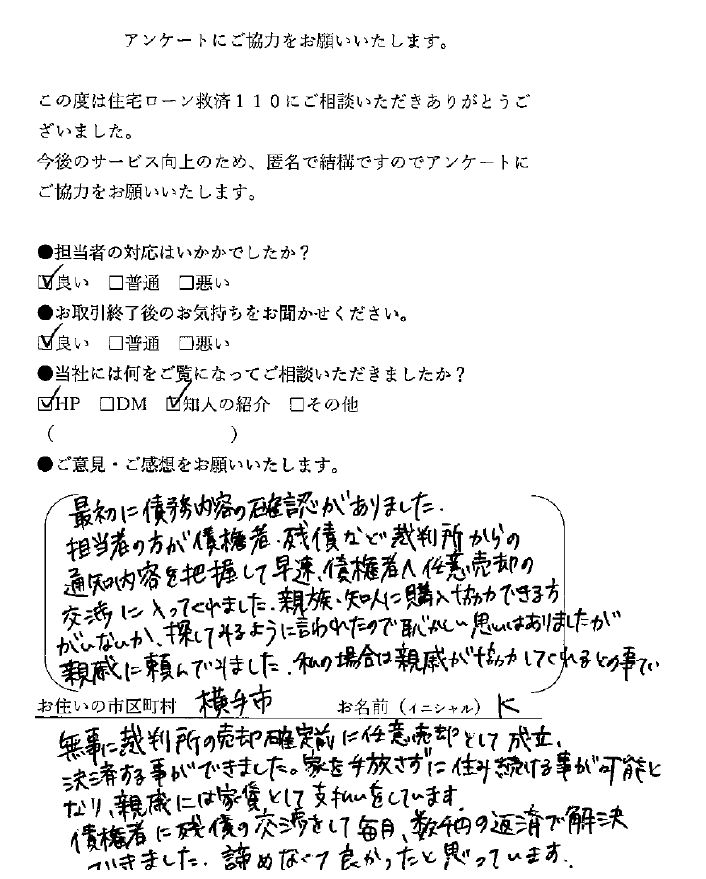 アンケートにご協力をお願いいたします。
この度は住宅ローン救済１１０にご相談いただきありがとうご
ざいました。
今後のサービス向上のため、匿名で結構ですのでアンケートに
ご協力をお願いいたします。
●担当者の対応はいかかでしたか？
☑良い　☐普通　☐悪い
●お取引終了後のお気持ちをお聞かせください。
☑良い　☐普通　☐悪い
●当社には何をご覧になってご相談いただきましたか？
☑HP　☐DM　☑知人の紹介　☐その他
（　　　　　　　　　　）
●ご意見・ご感想をお願いいたします。
最初に債務内容の確認がありました.
担当者の方が債権者・残債など裁判所からの
通知内容を把握して早速、債権者へ任意売却の
交渉に入ってくれました. 親族・知人に購入協力できる方
がいないか、探してみるように言われたので恥かしい思いはありましたが
親戚に頼んでみました. 私の場合は親戚が協力してくれるとの事で
お住いの市区町村　横手市　お名前（イニシャル）　K
無事に裁判所の売却確定前に任意売却として成立、
決済する事ができました。家を手放さずに住み続ける事が可能と
なり、親戚には家賃として支払いをしています.
債権者に残債の交渉をして毎月、数千円の返済で解決
できました. 諦めなくて良かったと思っています.